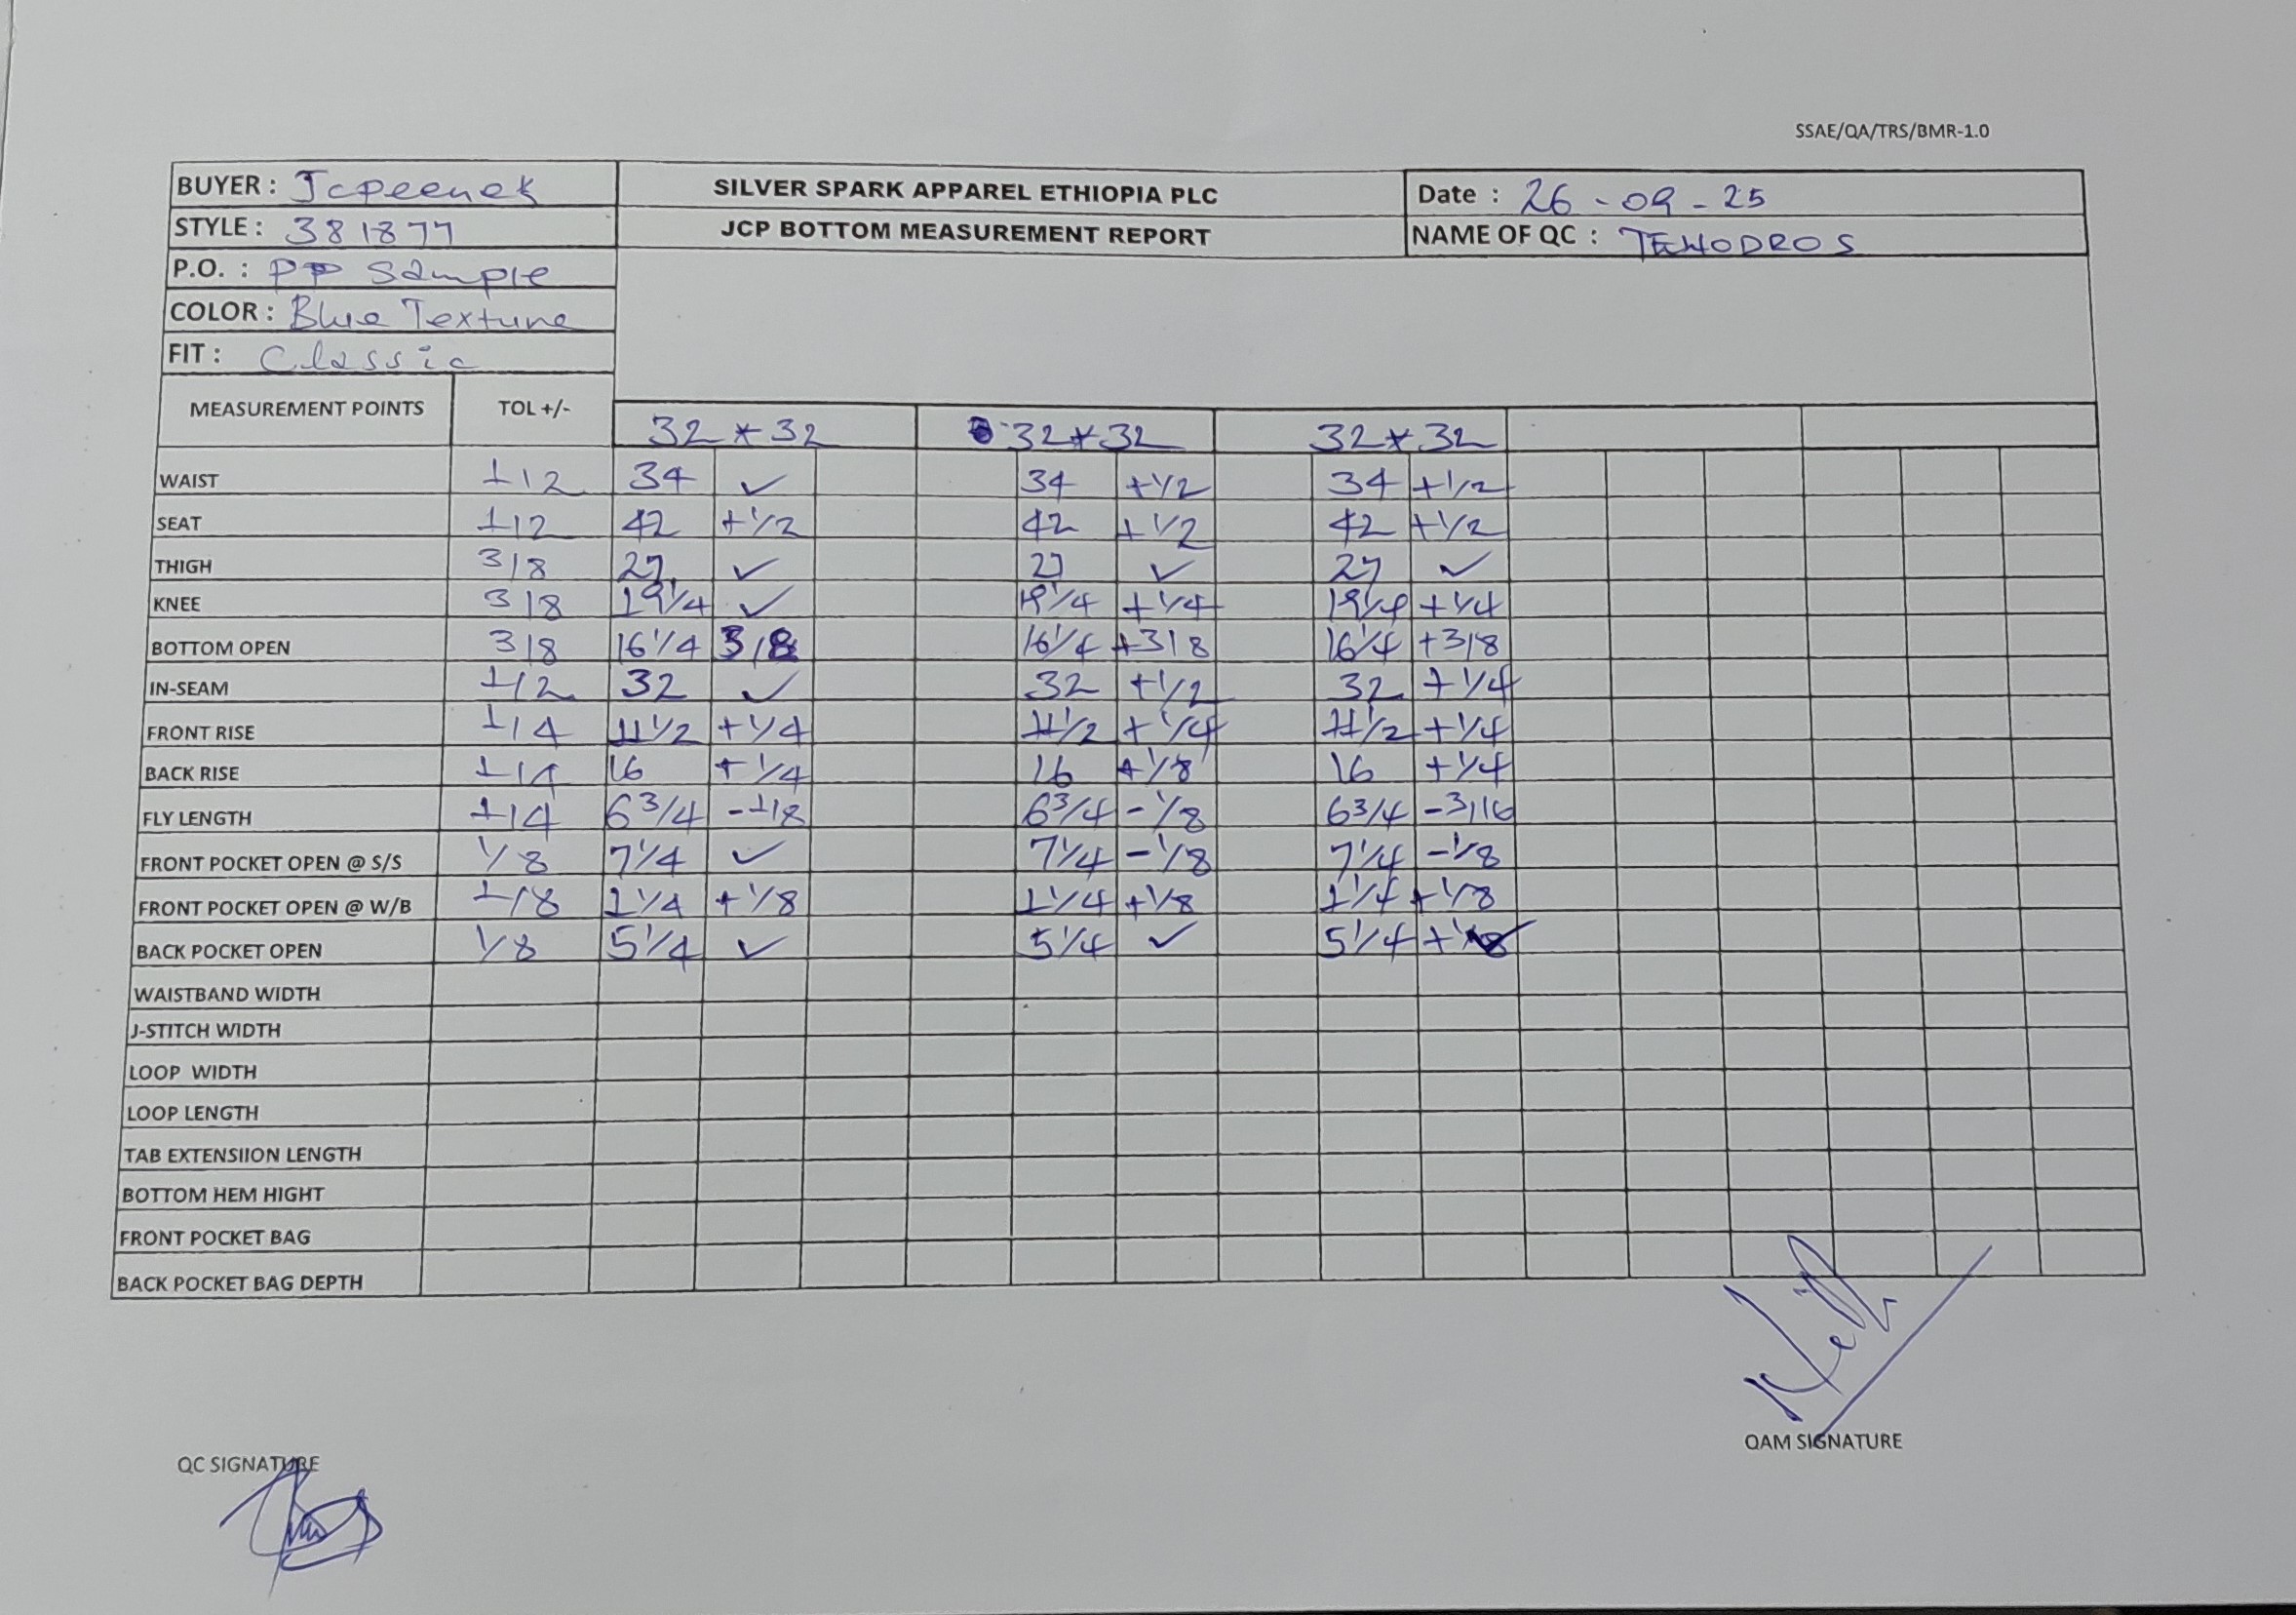 SSAE/QA/TRS/BMR-1.0
BUYER : Jcpeenek SILVER SPARK APPAREL ETHIOPIA PLC Date : 26 - 09 - 25
STYLE : 381877 JCP BOTTOM MEASUREMENT REPORT NAME OF QC : TEWODROS
P.O. : PP Sample
COLOR : Blue Texture
FIT : Classic
MEASUREMENT POINTS TOL +/-
32 * 32 32*32 32*32
WAIST 1/2 34 ✓ 34 +1/2 34 +1/2
SEAT 1/2 42 +1/2 42 +1/2 42 +1/2
THIGH 3/8 27 ✓ 27 ✓ 27 ✓
KNEE 3/8 19 1/4 ✓ 19 1/4 +1/4 19 1/4 +1/4
BOTTOM OPEN 3/8 16 1/4 3/8 16 1/4 +3/8 16 1/4 +3/8
IN-SEAM 1/2 32 ✓ 32 +1/2 32 +1/4
FRONT RISE 1/4 11 1/2 +1/4 11 1/2 +1/4 11 1/2 +1/4
BACK RISE 1/4 16 +1/4 16 +1/8 16 +1/4
FLY LENGTH 1/4 6 3/4 -1/8 6 3/4 -1/8 6 3/4 -3/16
FRONT POCKET OPEN @ S/S 1/8 7 1/4 ✓ 7 1/4 -1/8 7 1/4 -1/8
FRONT POCKET OPEN @ W/B 1/8 1 1/4 +1/8 1 1/4 +1/8 1 1/4 +1/8
BACK POCKET OPEN 1/8 5 1/4 ✓ 5 1/4 ✓ 5 1/4 ✓
WAISTBAND WIDTH
J-STITCH WIDTH
LOOP WIDTH
LOOP LENGTH
TAB EXTENSIION LENGTH
BOTTOM HEM HIGHT
FRONT POCKET BAG
BACK POCKET BAG DEPTH
QC SIGNATURE QAM SIGNATURE